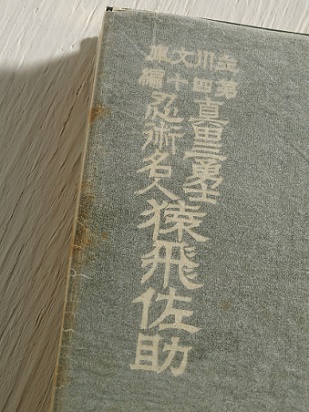 立川文庫
第四十編
真田三勇士
忍術名人
猿飛佐助